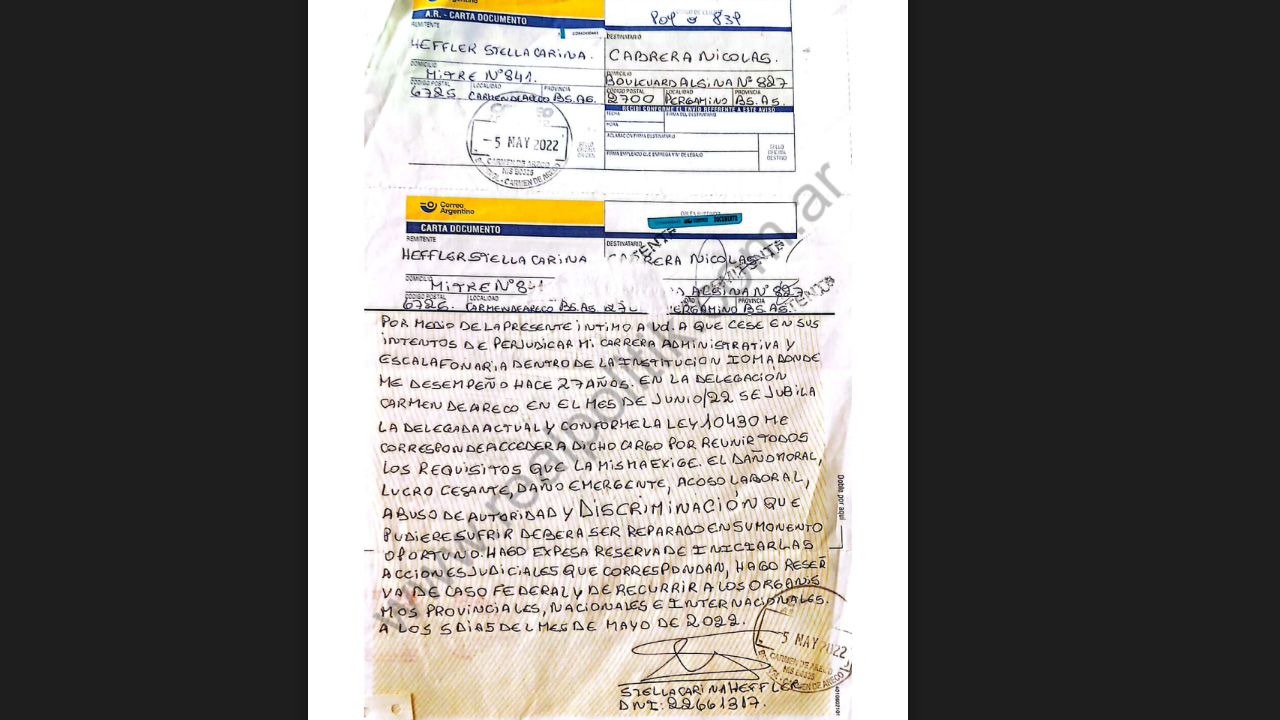 Argentino
A.R. - CARTA DOCUMENTO
REMITENTE
HEFFLER STELLA CARINA.
DOMICILIO
MITRE N°841.
CODIGO POSTAL LOCALIDAD PROVINCIA
6725 CARMEN DE ARECO BS.AS.
DESTINATARIO
CABRERA NICOLAS.
DOMICILIO
BOULEVARD ALSINA N° 827
CODIGO POSTAL LOCALIDAD PROVINCIA
2700 PERGAMINO BS.AS.
RECIBI CONFORME EL ENVIO REFERENTE A ESTE AVISO
FECHA FIRMA DEL DESTINATARIO
HORA
ACLARACION FIRMA DESTINATARIO
FIRMA EMPLEADO QUE ENTREGA Y N° DE LEGAJO
SELLO
OFICINA
DESTINO
SELLO
OFICINA
ORIGEN
- 5 MAY 2022
CARMEN DE ARECO
NIS B0325
Correo
Argentino
CARTA DOCUMENTO
REMITENTE
HEFFLER STELLA CARINA
DOMICILIO
MITRE N°84
CODIGO POSTAL LOCALIDAD
6725. CARMEN DE ARECO BS.AS.
DESTINATARIO
CABRERA NICOLAS
ALSINA N° 827
PROVINCIA
ERGAMINO BS.AS.
POR MEDIO DE LA PRESENTE INTIMO A Ud. A QUE CESE EN SUS
INTENTOS DE PERJUDICAR MI CARRERA ADMINISTRATIVA Y
ESCALAFONARIA DENTRO DE LA INSTITUCION IOMA DONDE
ME DESEMPEÑO HACE 27 AÑOS. EN LA DELEGACION
CARMEN DE ARECO EN EL MES DE JUNIO/22 SE JUBILA
LA DELEGADA ACTUAL Y CONFORME LA LEY 10430 ME
CORRESPONDE ACCEDER A DICHO CARGO POR REUNIR TODOS
LOS REQUISITOS QUE LA MISMA EXIGE. EL DAÑO MORAL,
LUCRO CESANTE, DAÑO EMERGENTE, ACOSO LABORAL,
ABUSO DE AUTORIDAD Y DISCRIMINACIÓN QUE
PUDIERE SUFRIR DEBERA SER REPARADO EN SU MONENTO
OPORTUNO. HAGO EXPESA RESERVA DE INICIAR LAS
ACCIONES JUDICIALES QUE CORRESPONDAN, HAGO RESER
VA DE CASO FEDERAL Y DE RECURRIR A LOS ORGANIS
MOS PROVINCIALES, NACIONALES E INTERNACIONALES.
A LOS 5 DIAS DEL MES DE MAYO DE 2022.
Dobla por aquí
5 MAY 2022
CARMEN DE ARECO
NIS B0325
STELLA CARINA HEFFLER
DNI: 22661317.
www.realpolitik.com.ar